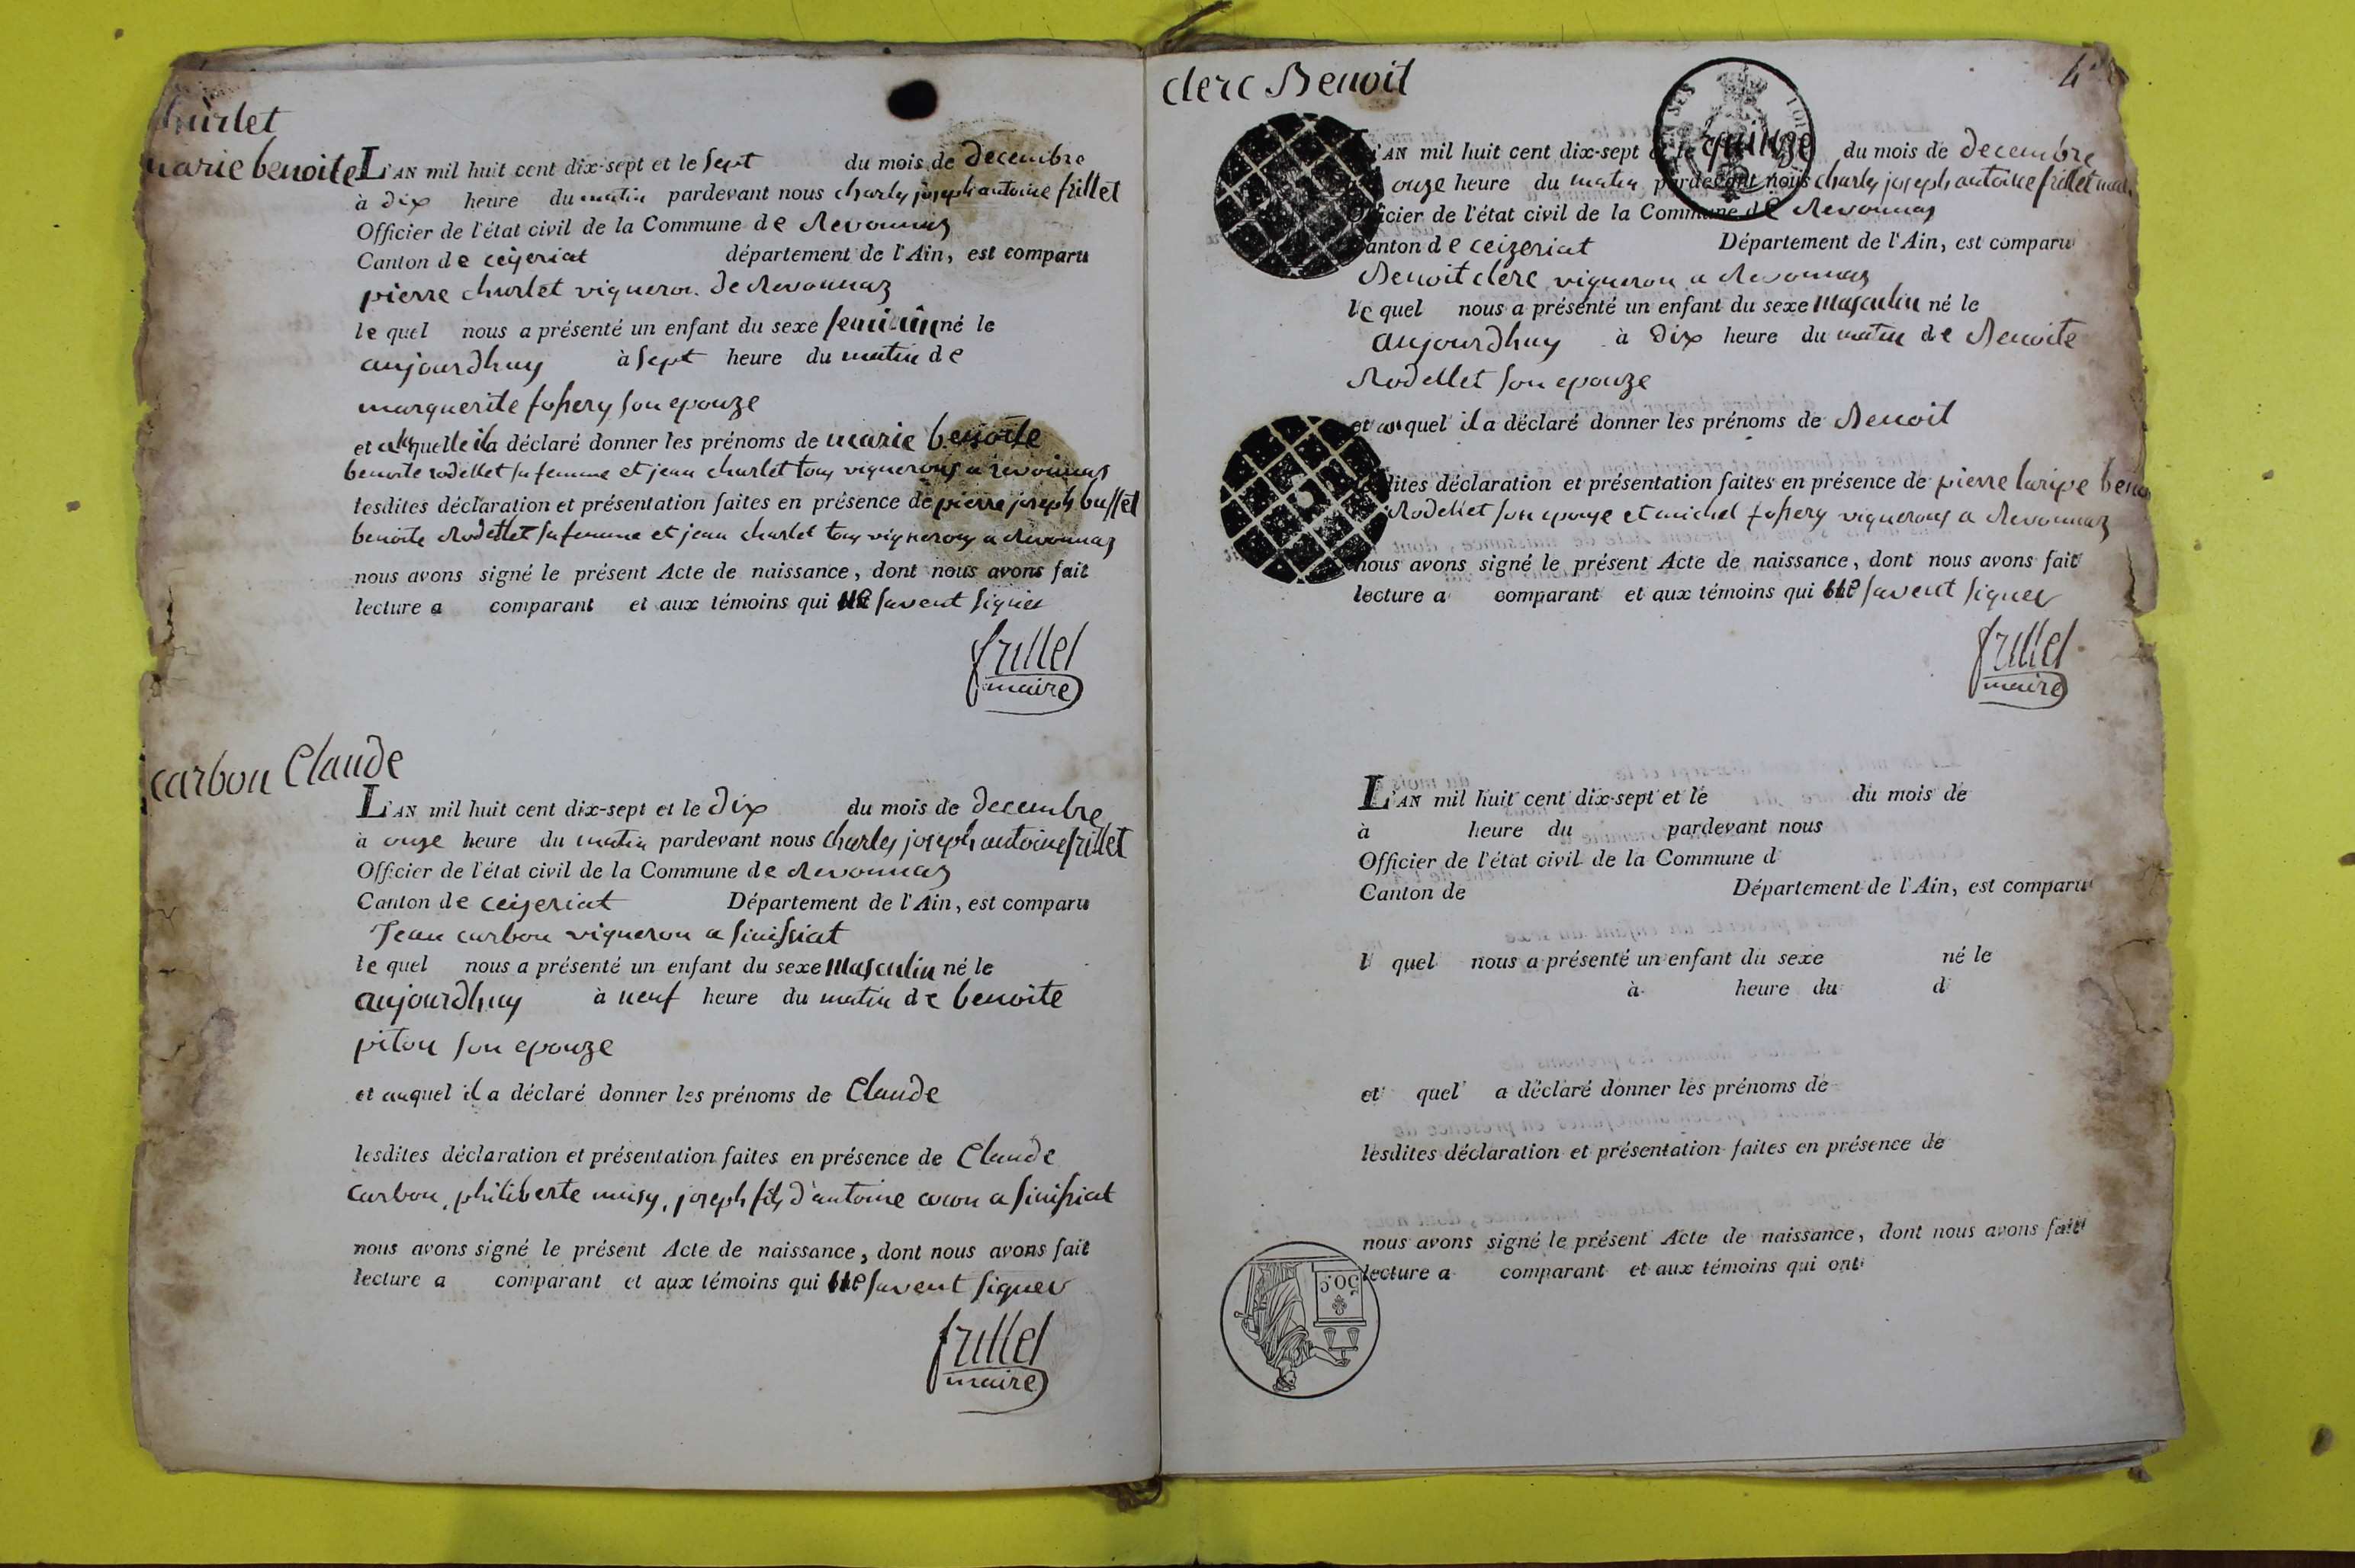 churlet
marie benoite
L'AN mil huit cent dix-sept et le sept du mois de decembre
à dix heure du matin pardevant nous charles joseph antoine frillet
Officier de l'état civil de la Commune de Revonnas
Canton de ceyzeriat département de l'Ain, est comparu
pierre churlet vigneron de Revonnaz
le quel nous a présenté un enfant du sexe feminin né le
aujourdhuy à sept heure du matin de
marguerite son epouze
et a laquelle il a déclaré donner les prénoms de marie benoite
benoite rodellet sa femme et jean churlet tous vignerons a revonnas
lesdites déclaration et présentation faites en présence de pierre joseph buffet
benoite Rodellet sa femme et jean churlet tous vignerons a Revonnaz
nous avons signé le présent Acte de naissance, dont nous avons fait
lecture a comparant et aux témoins qui ne savent signer
frillet
maire
carbon Claude
L'AN mil huit cent dix-sept et le dix du mois de decembre
à onze heure du matin pardevant nous charles joseph antoine frillet
Officier de l'état civil de la Commune de Revonnas
Canton de ceizeriat Département de l'Ain, est comparu
Jean carbon vigneron a sinissiat
le quel nous a présenté un enfant du sexe masculin né le
aujourdhuy à neuf heure du matin de benoite
piton son epouze
et auquel il a déclaré donner les prénoms de Claude
lesdites déclaration et présentation faites en présence de Claude
carbon, philiberte musy, joseph fils d'antoine cocon a sinissiat
nous avons signé le présent Acte de naissance, dont nous avons fait
lecture a comparant et aux témoins qui ne savent signer
frillet
maire
clerc Benoit
4
L'AN mil huit cent dix-sept et le quinze du mois de decembre
onze heure du matin pardevant nous charles joseph antoine frillet
Officier de l'état civil de la Commune de Revonnas
Canton de ceizeriat Département de l'Ain, est comparu
Benoit clerc vigneron a Revonnas
le quel nous a présenté un enfant du sexe masculin né le
aujourdhuy à dix heure du matin de Benoite
Rodellet son epouze
et auquel il a déclaré donner les prénoms de Benoit
lesdites déclaration et présentation faites en présence de pierre
Rodellet son epouze et michel vignerons a Revonnaz
nous avons signé le présent Acte de naissance, dont nous avons fait
lecture a comparant et aux témoins qui ne savent signer
frillet
maire
L'AN mil huit cent dix-sept et le du mois de
à heure du pardevant nous
Officier de l'état civil de la Commune d
Canton de Département de l'Ain, est comparu
l quel nous a présenté un enfant du sexe né le
à heure du d
et quel a déclaré donner les prénoms de
lesdites déclaration et présentation faites en présence de
nous avons signé le présent Acte de naissance, dont nous avons fait
lecture a comparant et aux témoins qui ont
50 c.